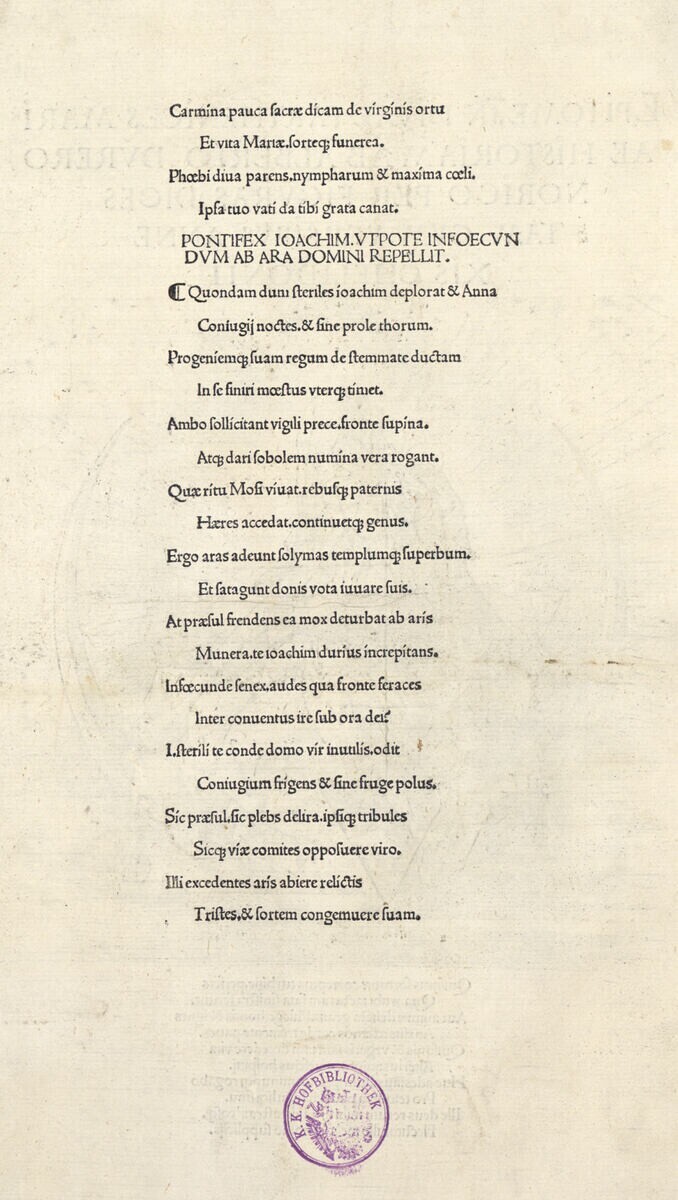 Carmina pauca sacræ dicam de virginis ortu
Et vita Mariæ.sorteqꝫ funerea.
Phœbi diua parens.nympharum & maxima cœli.
Ipsa tuo vati da tibi grata canat.
PONTIFEX IOACHIM.VTPOTE INFOECVN
DVM AB ARA DOMINI REPELLIT.
Quondam dum steriles ioachim deplorat & Anna
Coniugij noctes.& sine prole thorum.
Progeniemqꝫ suam regum de stemmate ductam
In se finiri mœstus vterqꝫ timet.
Ambo sollicitant vigili prece.fronte supina.
Atqꝫ dari sobolem numina vera rogant.
Quæ ritu Mosi viuat.rebusqꝫ paternis
Hæres accedat.continuetqꝫ genus.
Ergo aras adeunt solymas templumqꝫ superbum.
Et satagunt donis vota iuuare suis.
At præsul frendens ea mox deturbat ab aris
Munera.te ioachim durius increpitans.
Infœcunde senex.audes qua fronte feraces
Inter conuentus ire sub ora dei?
I.sterili te conde domo vir inutilis.odit
Coniugium frigens & sine fruge polus.
Sic præsul.sic plebs delira.ipsiqꝫ tribules
Sicqꝫ viæ comites opposuere viro.
Illi excedentes aris abiere relictis
Tristes.& sortem congemuere suam.
K. K. HOFBIBLIOTHEK